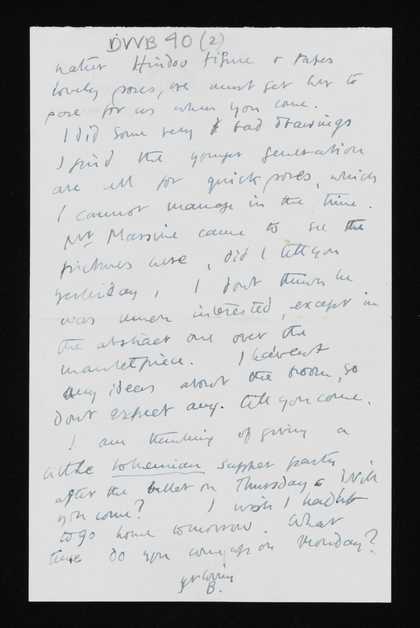 DVVB 90 (2)
rather Hindoo figure & takes
lovely poses, we must get her to
pose for us when you come.
I did some very bad drawings
I find the younger generation
are all for quick poses, which
I cannot manage in the time.
Mr Massine came to see the
pictures here, did I tell you
yesterday, I dont think he
was much interested, except in
the abstract one over the
mantelpiece. I havent
any ideas about the room, so
dont expect any. till you come.
I am thinking of giving a
little bohemian supper party
after the ballet on Thursday. Will
you come? I wish I hadnt
to go home tomorrow. What
time do you come up on Monday?
yr loving
B.